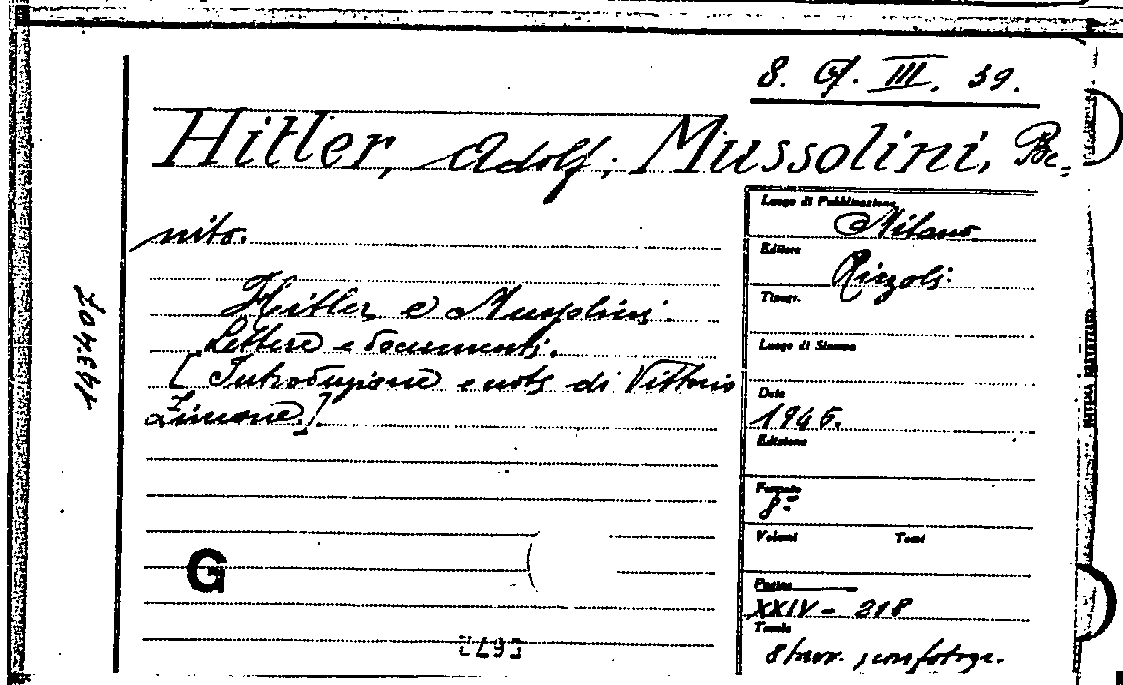 8. G. III. 39.
Hitler, Adolf; Mussolini, Be-
nito.
Hitler e Mussolini.
Lettere e documenti.
[Introduzione e note di Vittorio
Zincone.]
Luogo di Pubblicazione
Milano
Editore
Rizzoli.
Tipogr.
Luogo di Stampa
Data
1946.
Edizione
Formato
8°
Volumi Tomi
Pagine
XXIV - 218
Tavole
8 tavv. con fotogr.
G